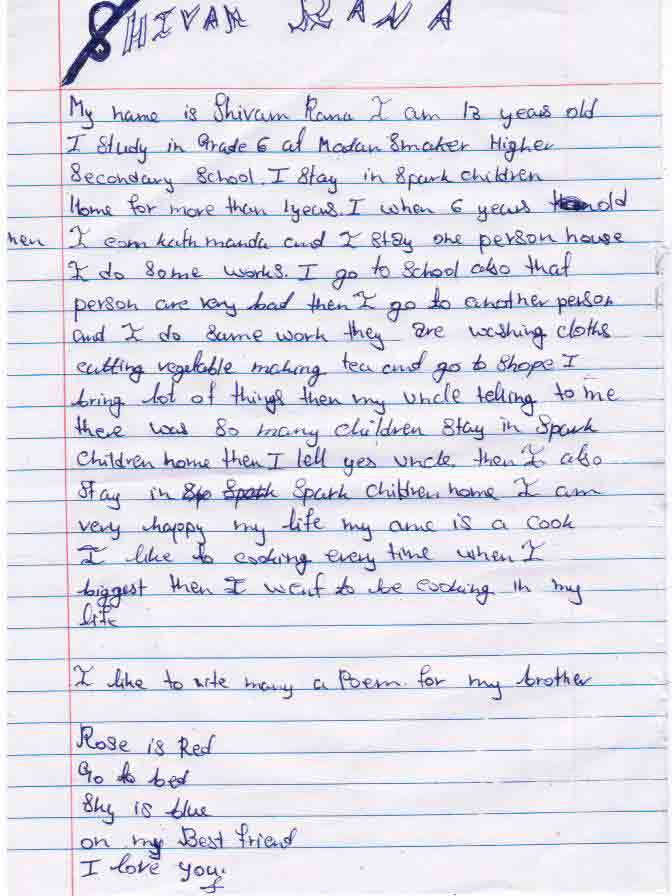 SHIVAM RANA
My name is Shivam Rana I am 13 years old
I Study in Grade 6 at Madan Smaker Higher
Secondary School. I Stay in Spark children
Home for more than 1years. I when 6 years old
hen I com kathmandu and I stay one person house
I do some works. I go to School also that
person are very bad then I go to another person
and I do same work they are washing cloths
cutting vegetable making tea and go to Shope I
bring lot of things then my uncle telling to me
there was so many children stay in Spark
Children home then I tell yes uncle. then I also
Stay in Spark children home I am
very happy my life my ame is a cook
I like to cooking every time when I
biggest then I went to be cooking in my
life
I like to rite many a Poem for my brother
Rose is Red
Go to bed
Sky is blue
on my Best friend
I love you.